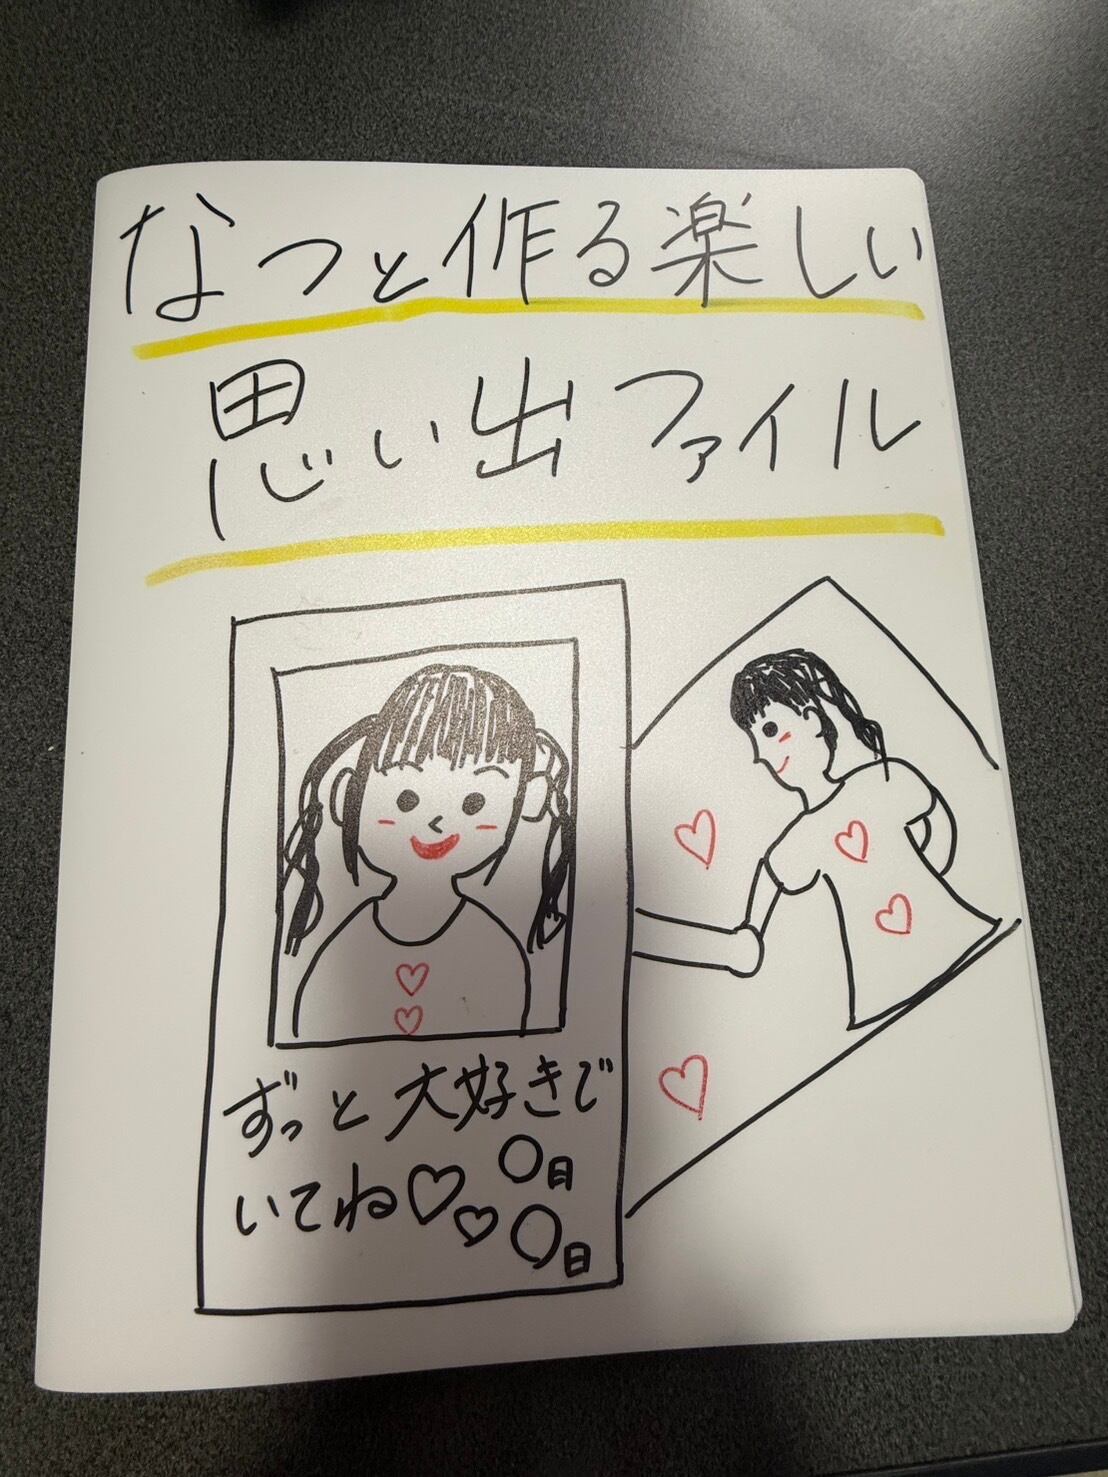 なつと作る楽しい
思い出ファイル
ずっと大好きで
いてね♡♡
〇日
〇日